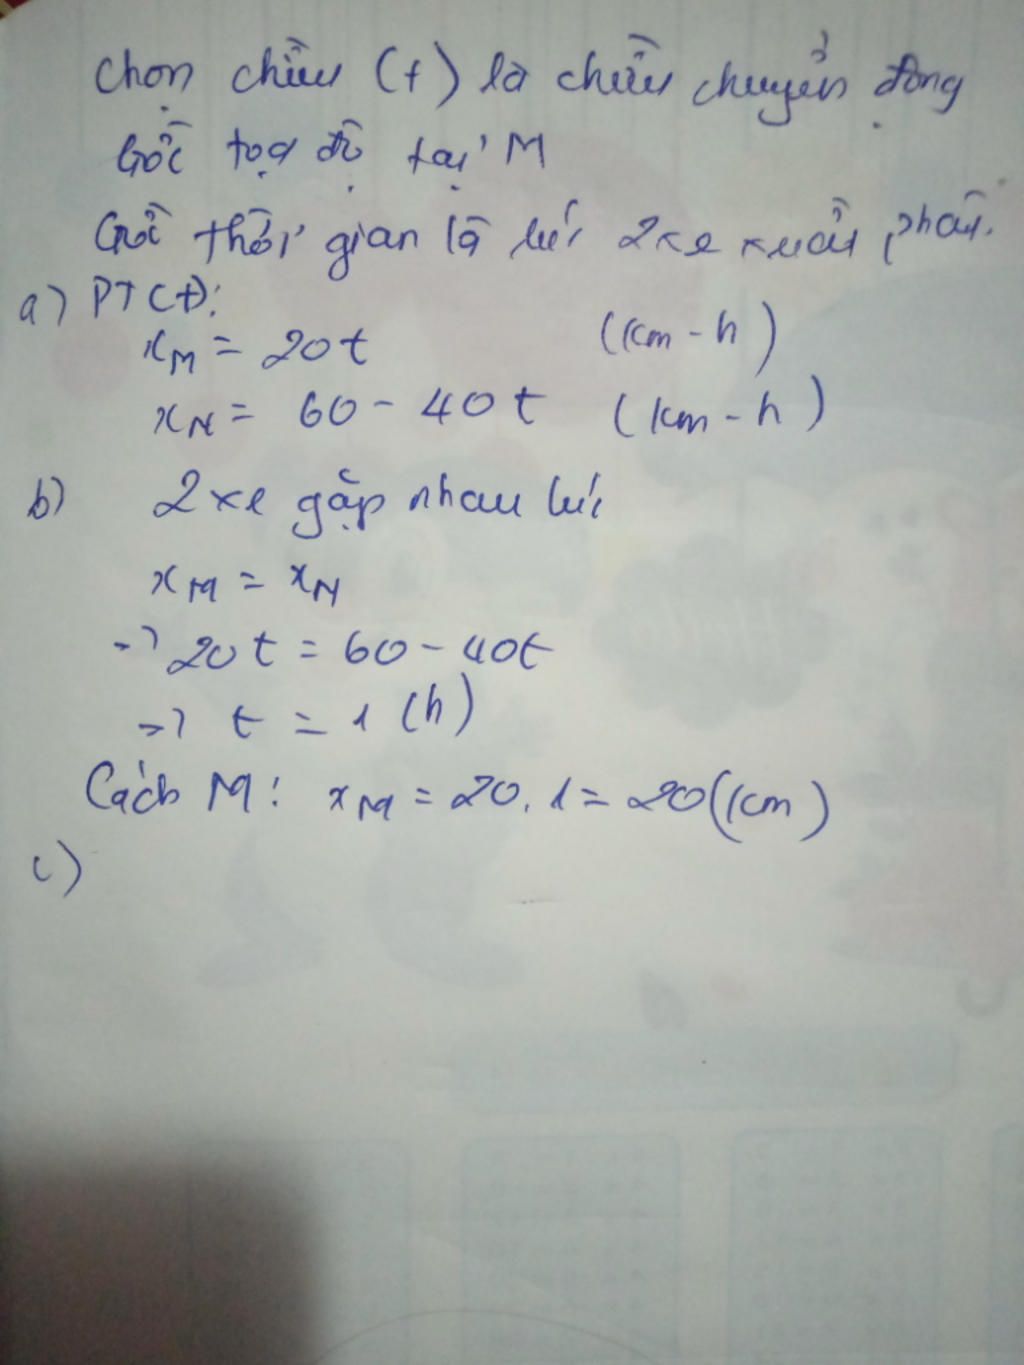 Chọn chiều (+) là chiều chuyển động
Gốc tọa độ tại M
Gốc thời gian là lúc 2 xe xuất phát.
a) PTCĐ:
x_M = 20t (km - h)
x_N = 60 - 40t (km - h)
b) 2 xe gặp nhau lúc
x_M = x_N
-> 20t = 60 - 40t
-> t = 1 (h)
Cách M: x_M = 20. 1 = 20 (km)
c)